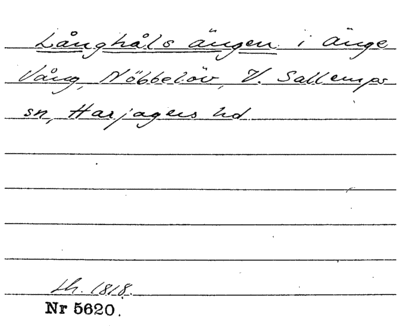 Långhåls ängen i änge
Vång, Nöbbelöv, V. Sallerups
sn, Harjagers hd
Lh. 1818.
Nr 5620.